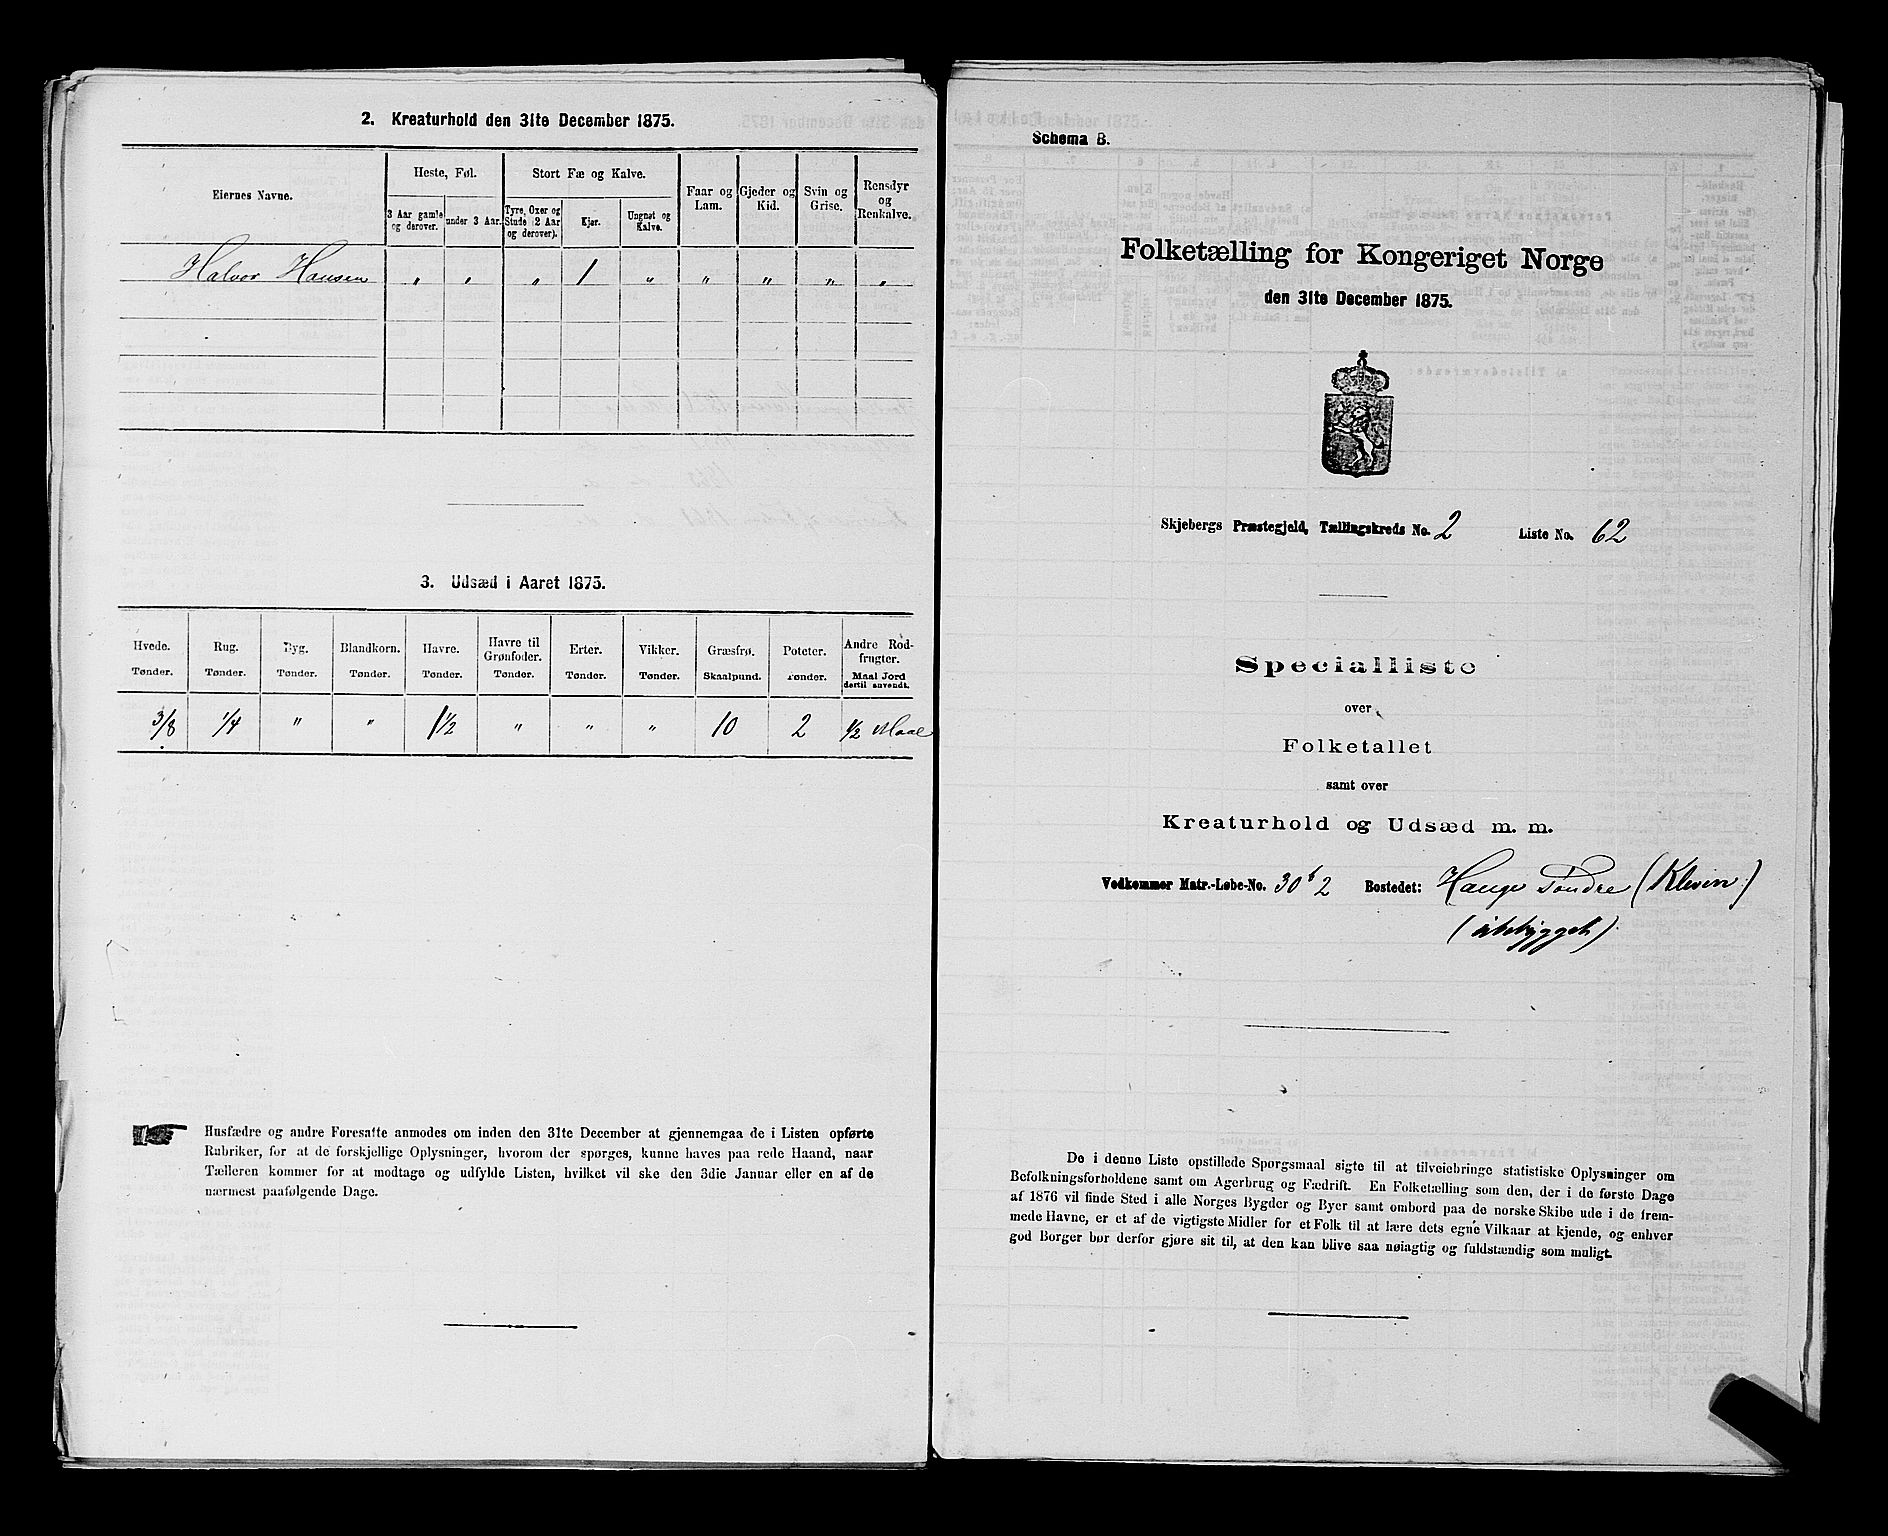 2. Kreaturhold den 31te December 1875.
Eiernes Navne.
Heste, Føl.
Stort Fæ og Kalve.
Faar og Lam.
Gjeder og Kid.
Svin og Grise.
Rensdyr og Renkalve.
3 Aar gamle og derover.
under 3 Aar.
Tyre, Oxer og Stude (2 Aar og derover).
Kjør.
Ungnøt og Kalve.
Halvor Hansen " " " 1 " " " " "
3. Udsæd i Aaret 1875.
Hvede. Rug. Byg. Blandkorn. Havre. Havre til Grønfoder. Erter. Vikker. Græsfrø. Poteter. Andre Rodfrugter.
Tønder. Tønder. Tønder. Tønder. Tønder. Tønder. Tønder. Tønder. Skaalpund. Tønder. Maal Jord dertil anvendt.
3/8 1/4 " " 1 1/2 " " " 10 2 1/2 Maal
Husfædre og andre Foresatte anmodes om inden den 31te December at gjennemgaa de i Listen opførte
Rubriker, for at de forskjellige Oplysninger, hvorom der spørges, kunne haves paa rede Haand, naar
Tælleren kommer for at modtage og udfylde Listen, hvilket vil ske den 3die Januar eller en af de
nærmest paafølgende Dage.
Schema B.
Folketælling for Kongeriget Norge
den 31te December 1875.
Skjebergs Præstegjeld, Tællingskreds No. 2 Liste No. 62
Specialliste
over
Folketallet
samt over
Kreaturhold og Udsæd m. m.
Vedkommer Matr.-Løbe-No. 30 b 2 Bostedet: Hauge Søndre (Kleven)
(ubebygget)
De i denne Liste opstillede Spørgsmaal sigte til at tilveiebringe statistiske Oplysninger om
Befolkningsforholdene samt om Agerbrug og Fædrift. En Folketælling som den, der i de første Dage
af 1876 vil finde Sted i alle Norges Bygder og Byer samt ombord paa de norske Skibe ude i de frem-
mede Havne, er et af de vigtigste Midler for et Folk til at lære dets egne Vilkaar at kjende, og enhver
god Borger bør derfor gjøre sit til, at den kan blive saa nøiagtig og fuldstændig som muligt.